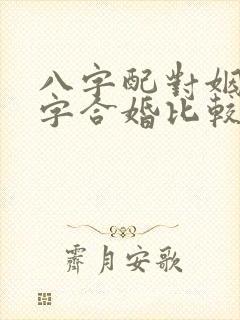 八字配對姻
字合婚比較
霽月安歌